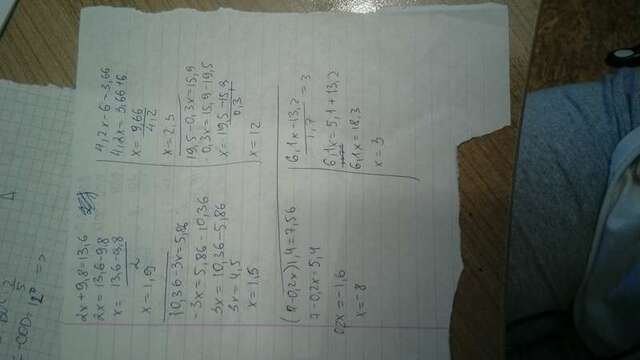 2x+9,8=13,6
2x=13,6-9,8
x= 13,6-9,8
2
x=1,9
10,36-3x=5,86
-3x=5,86-10,36
3x=10,36-5,86
3x=4,5
x=1,15
(7-0,2x)1,4=7,56
7-0,2x=5,4
x=-8
4,2x-6=3,66
4,2x=3,66+6
x= 9,66
4,2
x=2,3
19,5-0,3x=15,9
-0,3x=15,9-19,5
x= 19,5-15,9
0,3
x=12
6,1x-13,2
1,7
=3
6,1x=5,1+13,2
6,1x=18,3
x=3